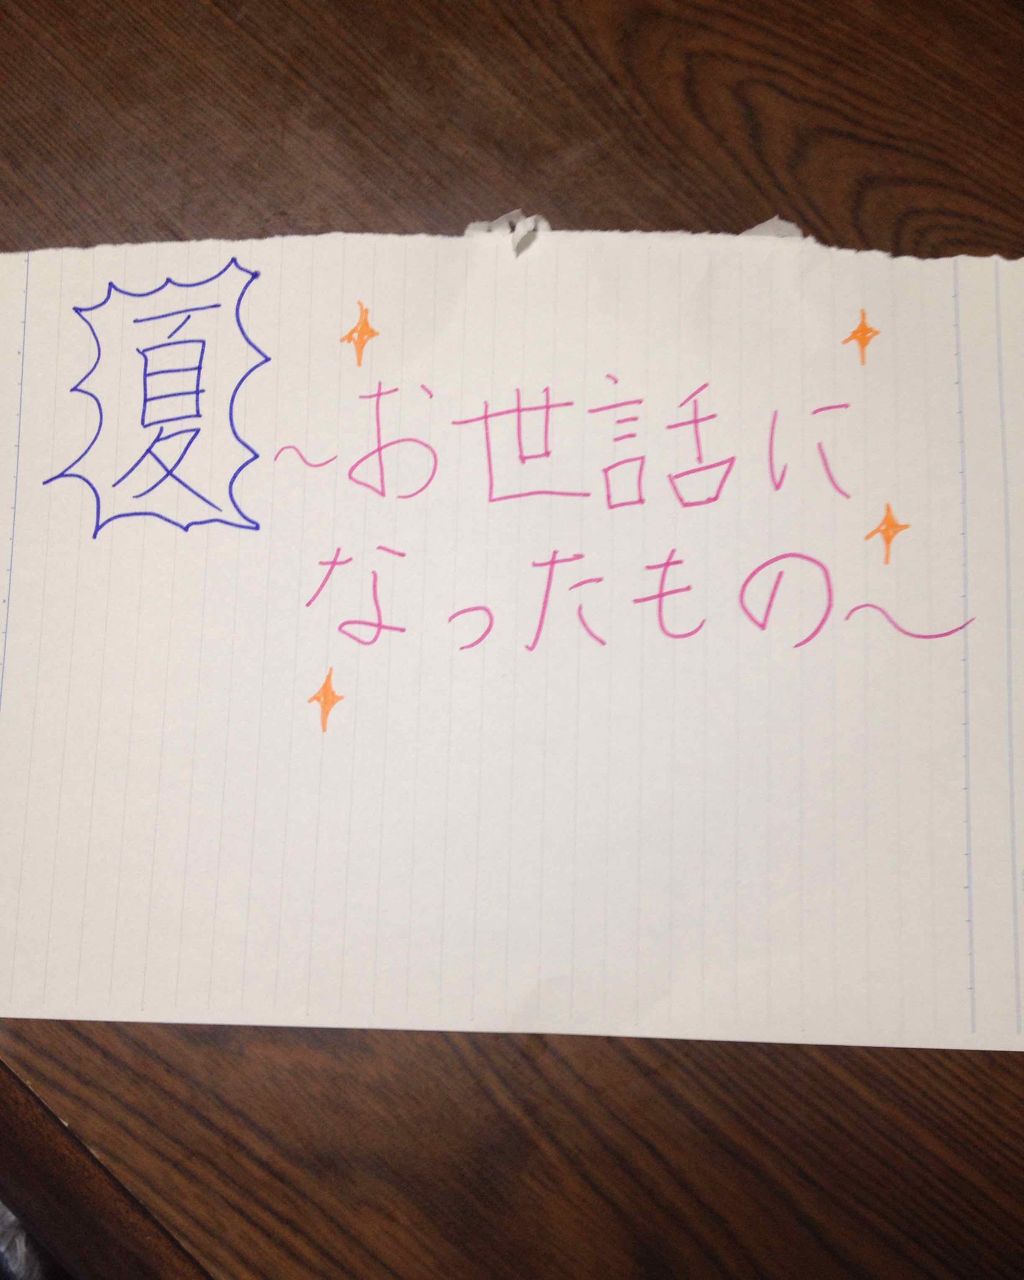 夏 ~お世話に
なったもの~